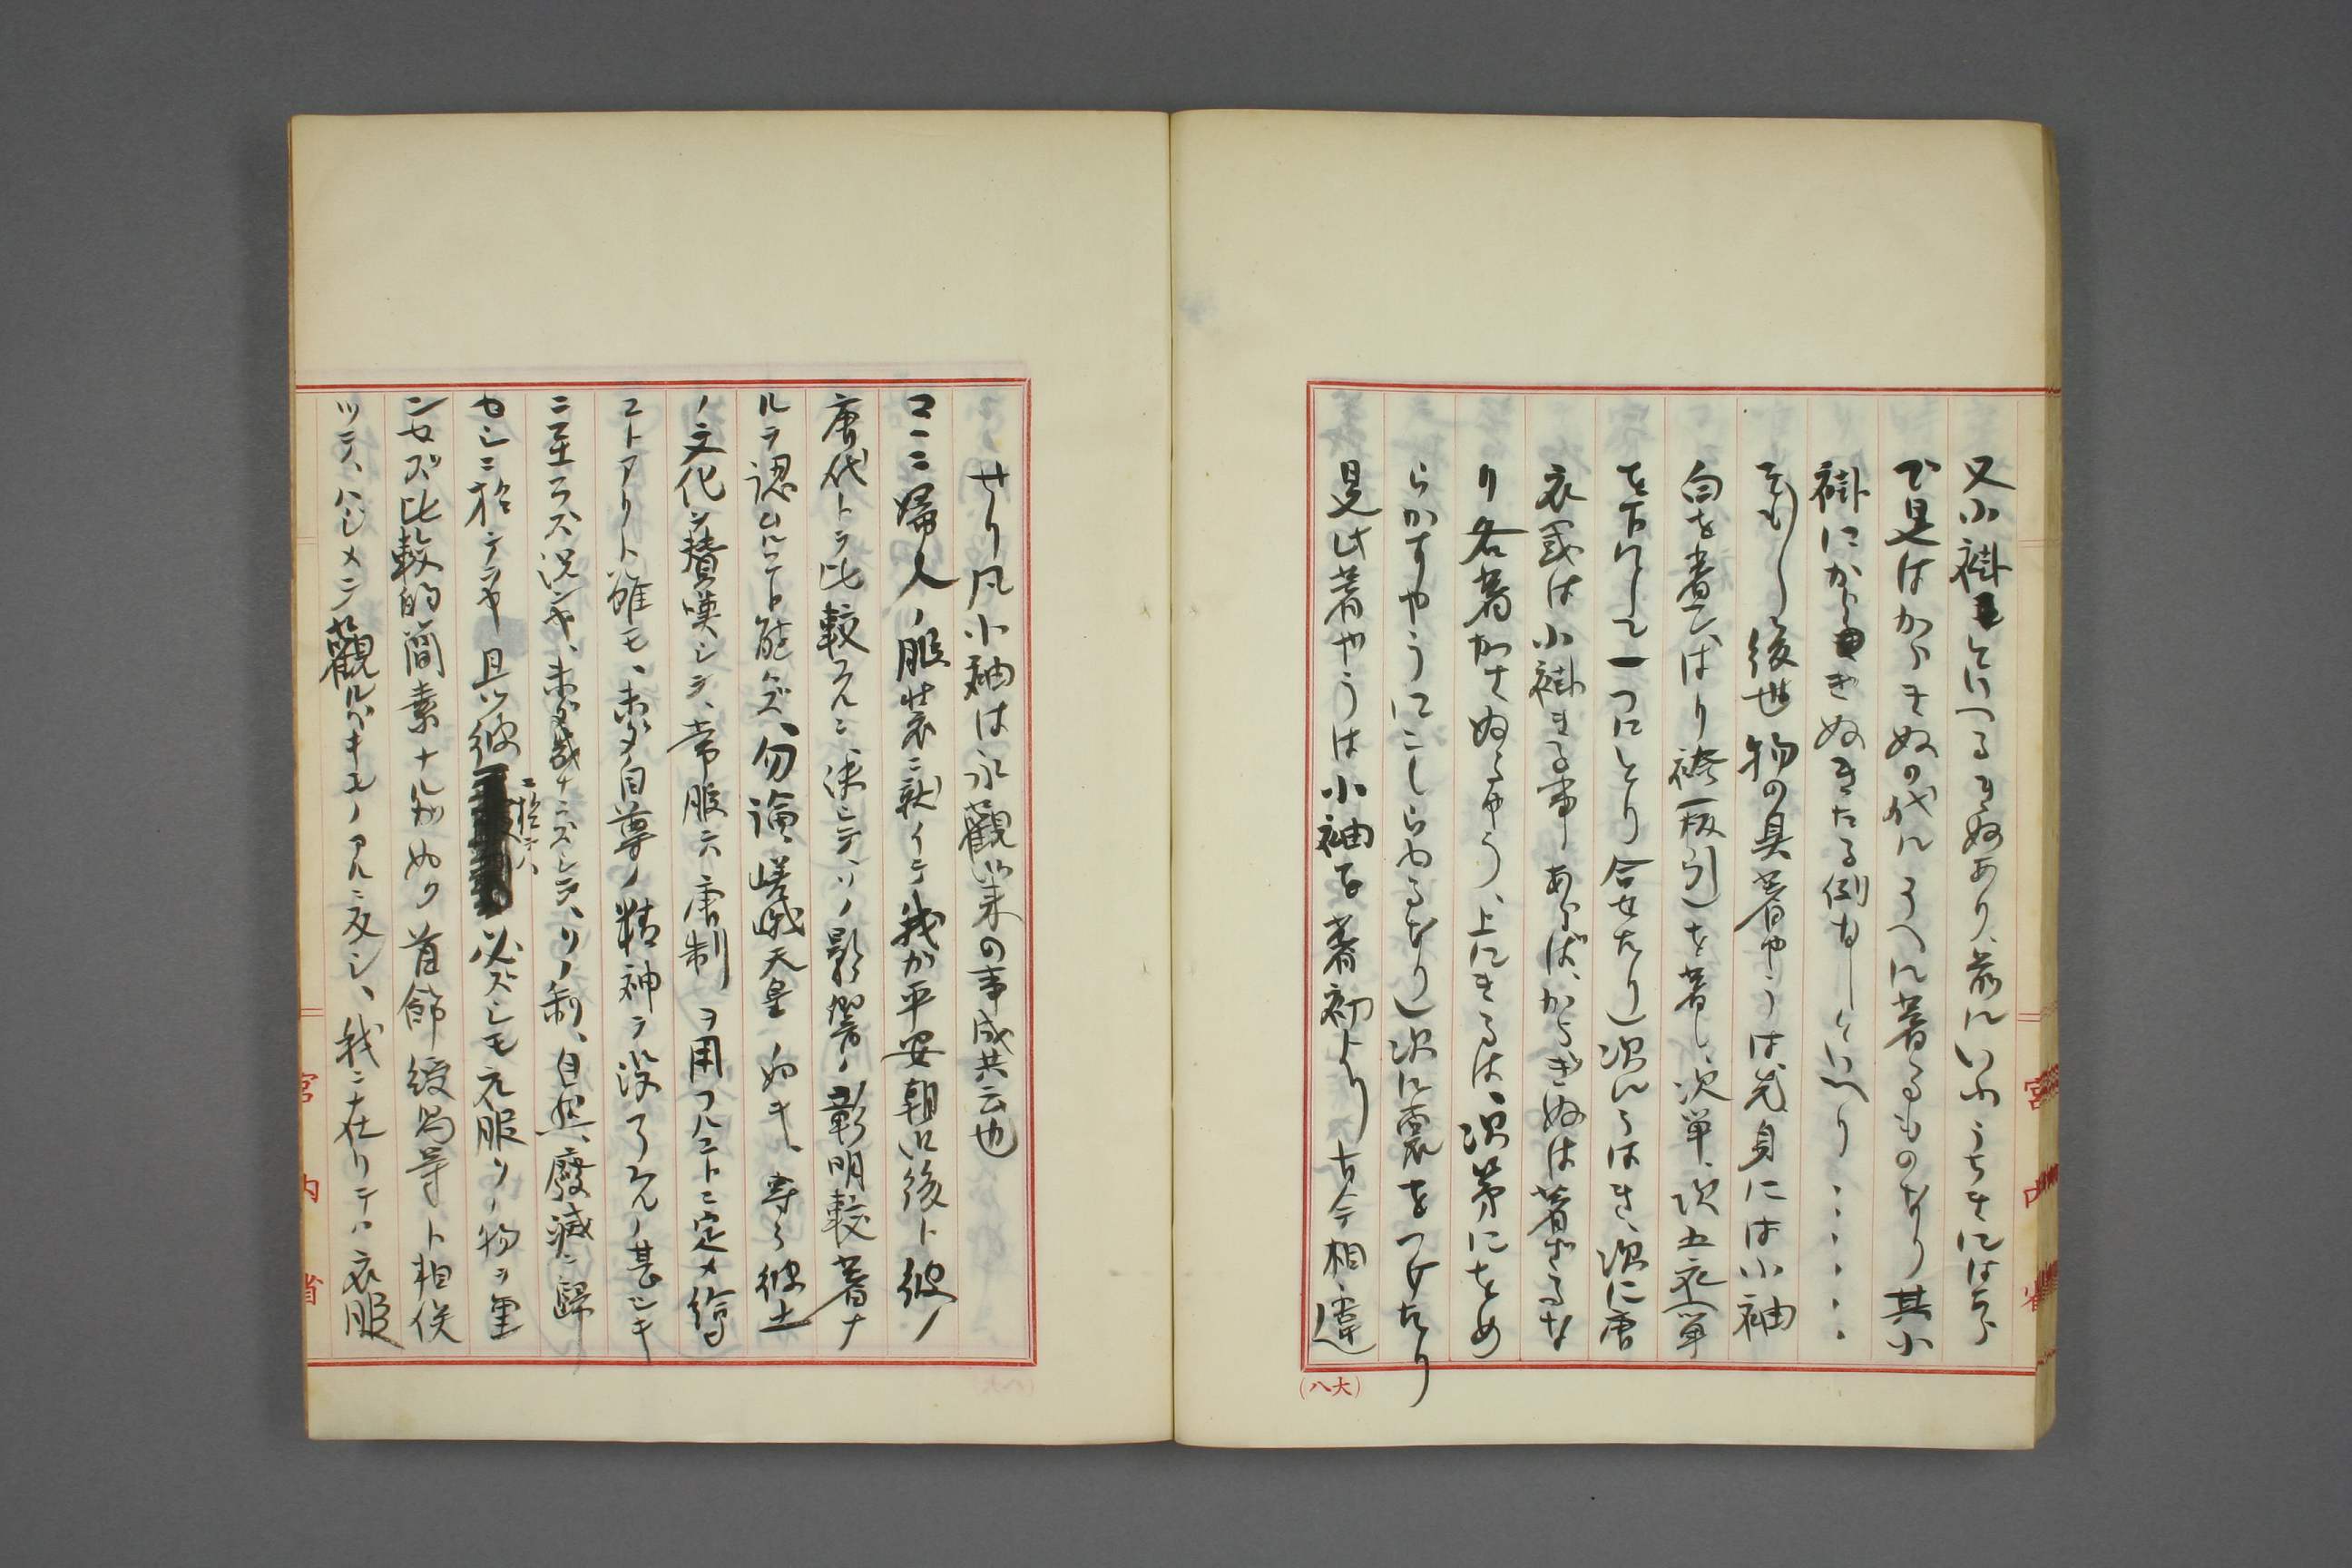 又小褂といへるきぬあり、前にいふうちきにはあら
で是はからきぬの代にうへに著るものなり其小
褂にからきぬきたる例なしといへり・・・・・・
そも〳〵後世物の具著やうは先身には小袖
白を著こはり袴(板引)を著し、次単、次五衣(単
を下にして一つにとり合せたり)次にうはき、次に唐
衣或は小褂きる事あらば、からぎぬは著ざるな
り各著かさぬるやう、上にきるは、次第にをめ
らかすやうにこしらゆるなり)次に裳をつけたり
是此著やうは小袖を著初より古今相違
(八大)
宮内省
せり凡小袖は永観以来の事成共云也
ココニ婦人ノ服装ニ就イテ我が平安朝以後ト彼ノ
唐代トヲ比較スルニ決シテ、ソノ影響ノ彰明較著ナ
ルヲ認ムルコト能ハズ、勿論嵯峨天皇ノ如キ、寄ラ彼土
ノ文化ヲ賛嘆シテ、常服ニ唐制ヲ用フルコトニ定メ給
コトアリト雖モ、未ダ自尊ノ精神ヲ没了スルノ甚シキ
ニ至ラズ況ンヤ、未ダ幾ナラズシテ、ソノ制、自然、廃滅ニ帰
セシニ於テヲヤ且ツ彼ニ於テハ必ズシモ元服ソノ物ヲ重
ンセズ比較的簡素ナルガ如ク首飾綬舄等ト相俟
ツテ、ハジメテ観ルベキモノアルニ反シ、我ニ在リテハ衣服
宮内省